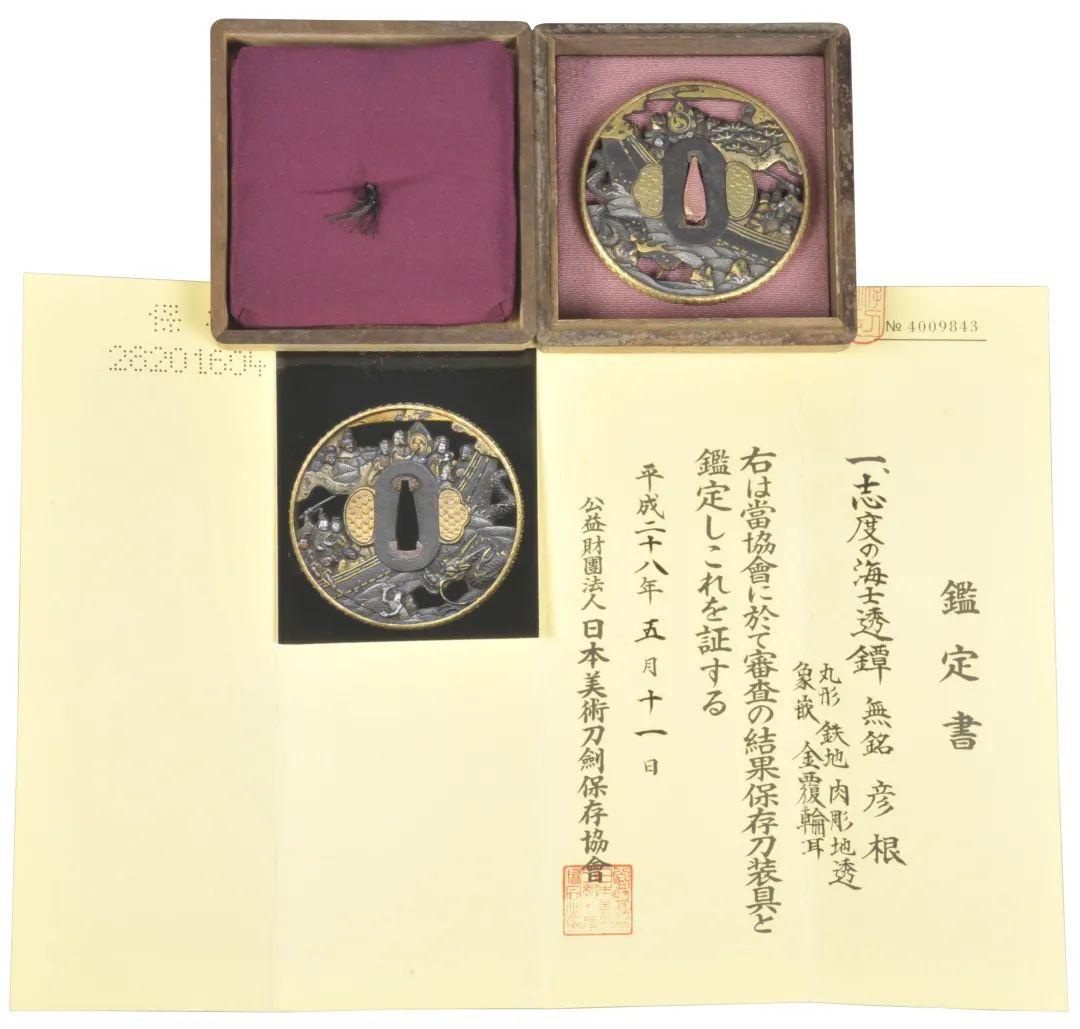 № 4009843
鑑定書
一、志度の海士透鐔 無銘 彦根
丸形 鉄地 肉彫地透
象嵌 金覆輪耳
右は當協會に於て審査の結果保存刀装具と
鑑定しこれを証する
平成二十八年 五月十一日
公益財團法人 日本美術刀劍保存協會
28201604